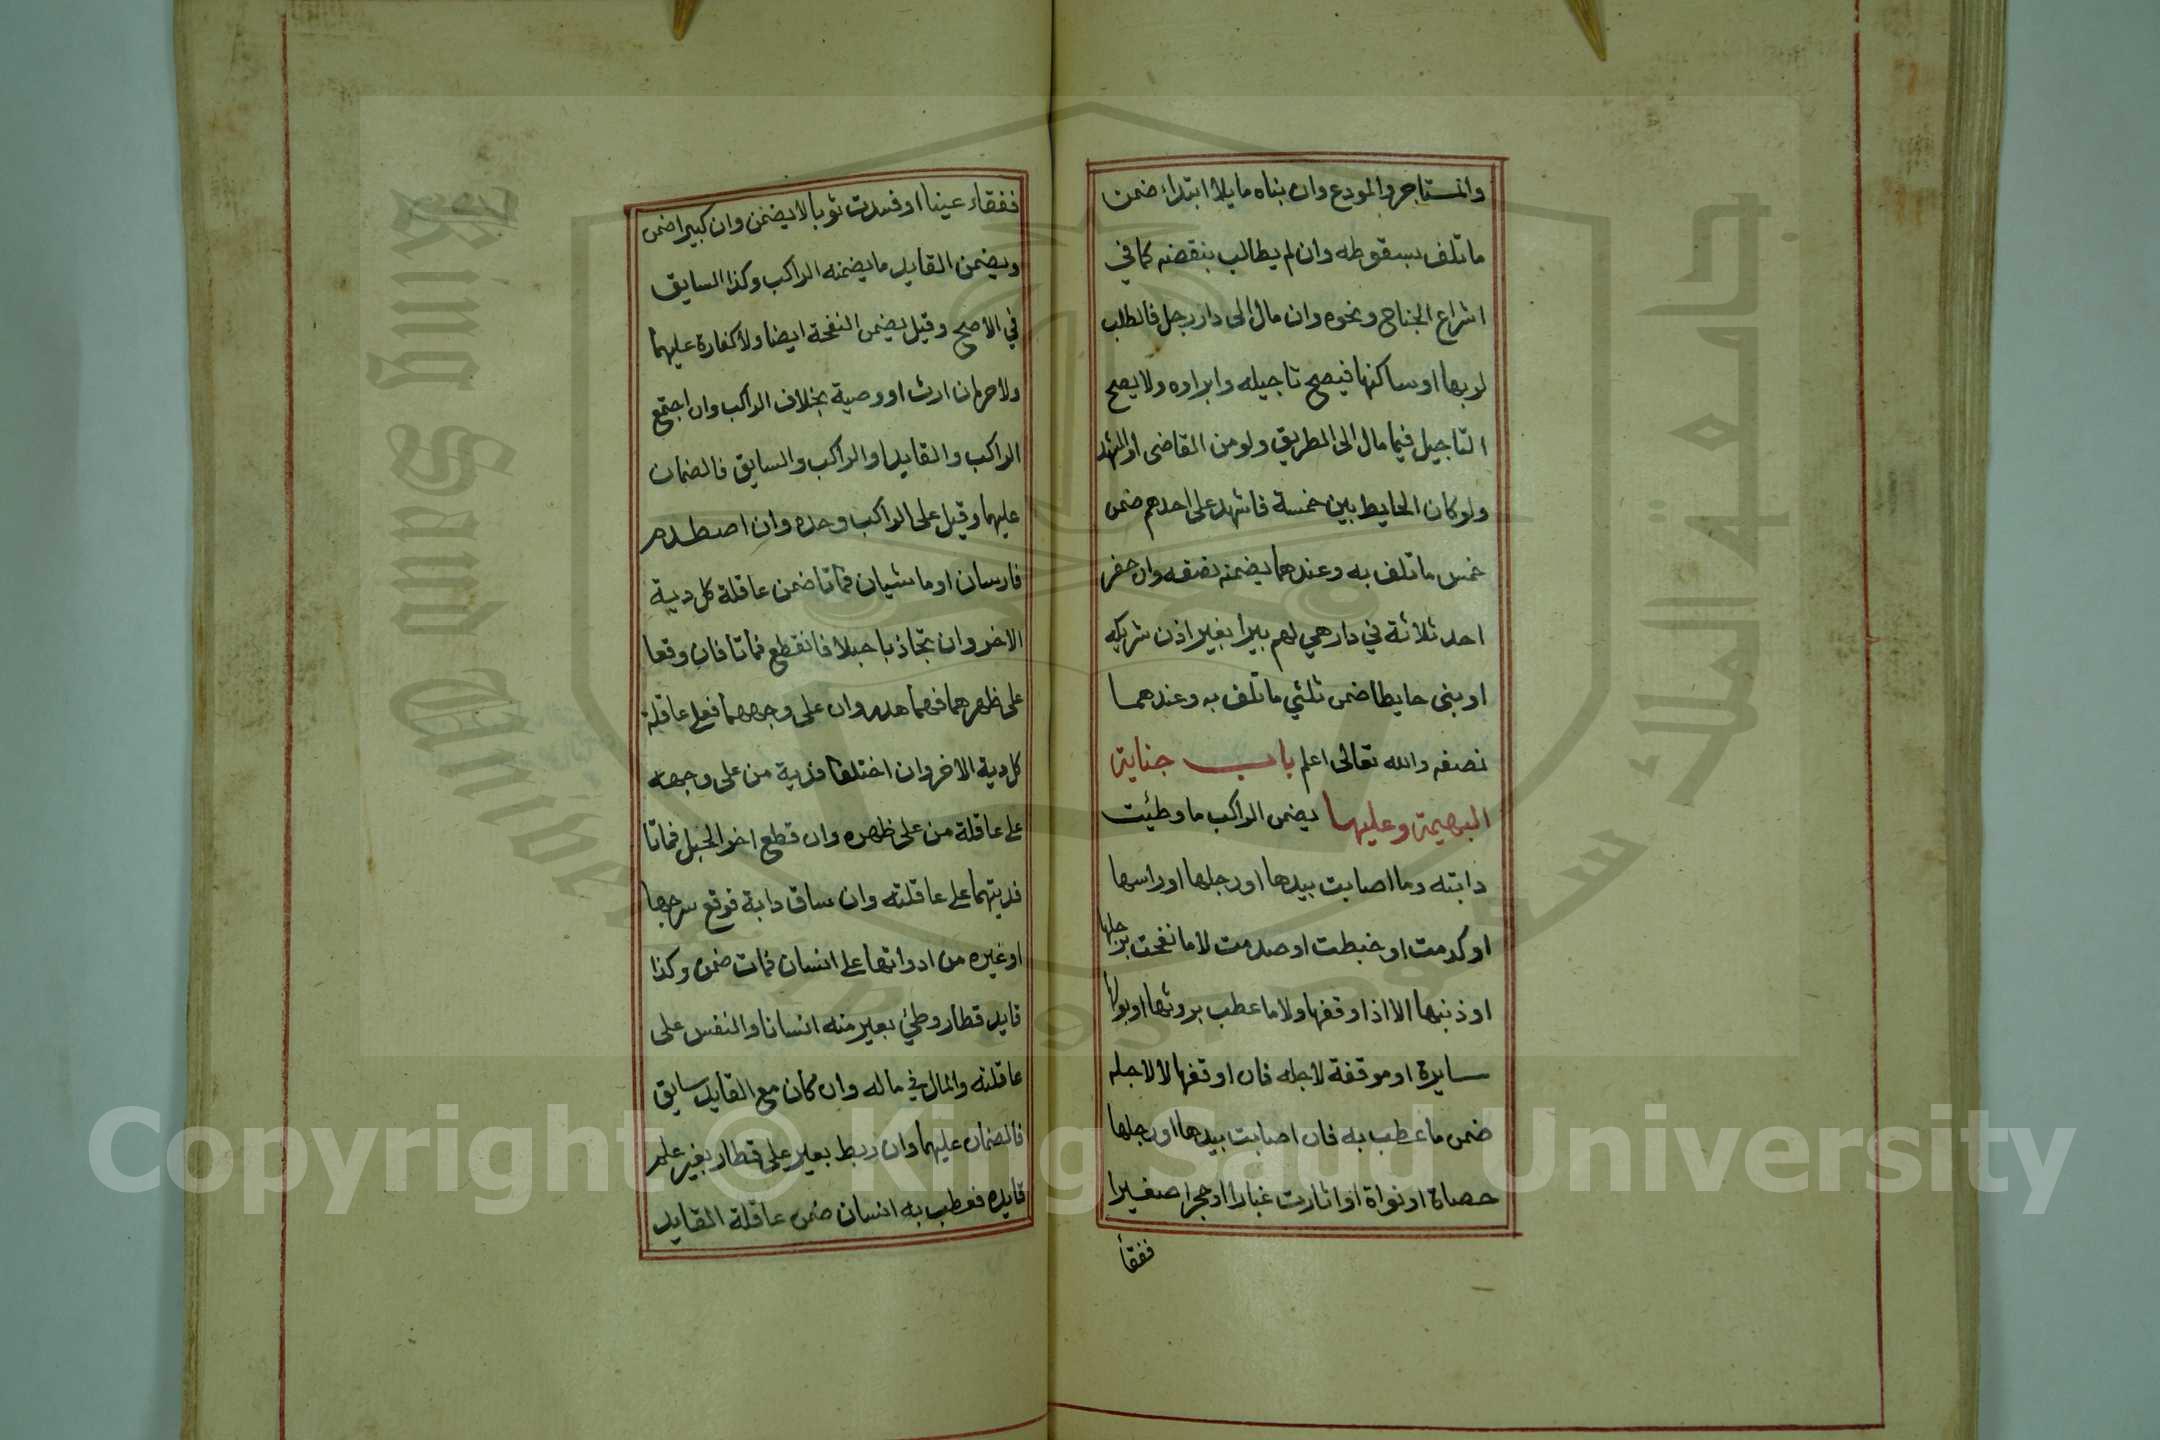 والمستاجر والمودع وان بناه مايلا ابتداء ضمن
ماتلف بسقوطه وان لم يطالب بنقضه كما في
اشراع الجناح ونحوه وان مال الى دار رجل فالطلب
لربها او ساكنها فيصح تاجيله وابراده ولا يصح
التاجيل فيما مال الى الطريق ولو من القاضى او المشهد
ولو كان الحايط بين خمسة فاشهد على احدهم ضمن
خمس ماتلف به وعندهما يضمنه نصفه وان حفر
احد ثلاثة في دار هي لهم بيرا بغير اذن شريكه
او بنى حايطا ضمن ثلثي ماتلف به وعندهما
نصفه والله تعالى اعلم باب جناية
البهيمة وعليها يضمن الراكب ما وطئت
دابته وما اصابت بيدها او رجلها او راسها
او كدمت او خبطت او صدمت لا ما نفحت برجلها
او ذنبها الا اذا اوقفها ولا ما عطب بروثها او بولها
سايرة او موقفة لاجله فان اوقفها لا لاجله
ضمن ما عطب به فان اصابت بيدها او رجلها
حصاة او نواة او اثارت غبارا او حجرا صغيرا
ففقأ
ففقاء عينا او فسدت ثوبا لا يضمن وان كبيرا ضمن
ويضمن القايد ما يضمنه الراكب وكذا السايق
في الاصح وقيل يضمن النفحة ايضا ولا كفارة عليهما
ولا حرمان ارث او وصية بخلاف الراكب وان اجتمع
الراكب والقايد او الراكب والسايق فالضمان
عليهما وقيل على الراكب وحده وان اصطدم
فارسان او ماشيان فماتا ضمن عاقلة كل دية
الاخر وان تجاذبا حبلا فانقطع فماتا فان وقعا
على ظهرهما فهما هدر وان على وجههما فعلى عاقلة
كل دية الاخر وان اختلفا فدية من على وجهه
على عاقلة من على ظهره وان قطع اخر الحبل فماتا
فديتهما على عاقلته وان ساق دابة فوقع سرجها
او غيره من ادواتها على انسان فمات ضمن وكذا
قايد قطار وطئ بعير منه انسانا والنفس على
عاقلته والمال في ماله وان كان مع القايد سايق
فالضمان عليهما وان ربط بعير على قطار بغير علم
قايده فعطب به انسان ضمن عاقلة القايد
King Saud University
1957
جامعة الملك سعود
Copyright © King Saud University